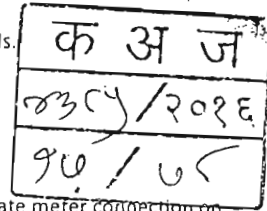 ls.
क अ ज
/२०१६
१५ / ७८
ate meter connection on